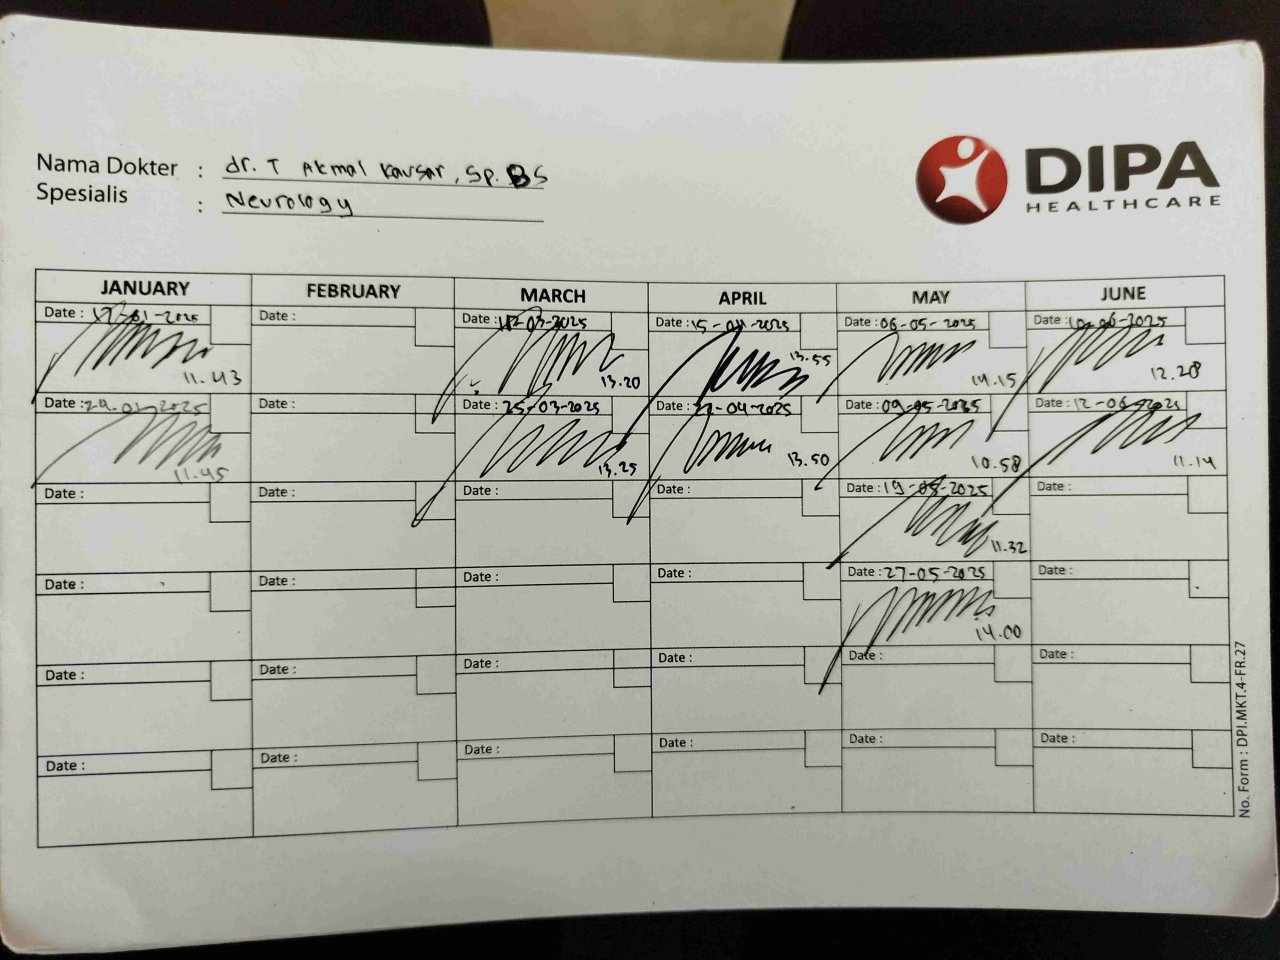 Nama Dokter : dr. T Akmal Kausar, Sp. BS
Spesialis : Neurology
DIPA
HEALTHCARE
JANUARY FEBRUARY MARCH APRIL MAY JUNE
Date : 17-01-2025 Date : Date : -03-2025 Date : 15-04-2025 Date : 06-05-2025 Date : -06-2025
11.43 13.20 13.55 14.15 12.28
Date : 29-01-2025 Date : Date : 25-03-2025 Date : 22-04-2025 Date : 09-05-2025 Date : 12-06-2025
11.45 13.25 13.50 10.58 11.14
Date : Date : Date : Date : Date : 19-05-2025 Date :
11.32
Date : Date : Date : Date : Date : 27-05-2025 Date :
14.00
Date : Date : Date : Date : Date : Date :
Date : Date : Date : Date : Date : Date :
No. Form : DPI.MKT.4-FR.27